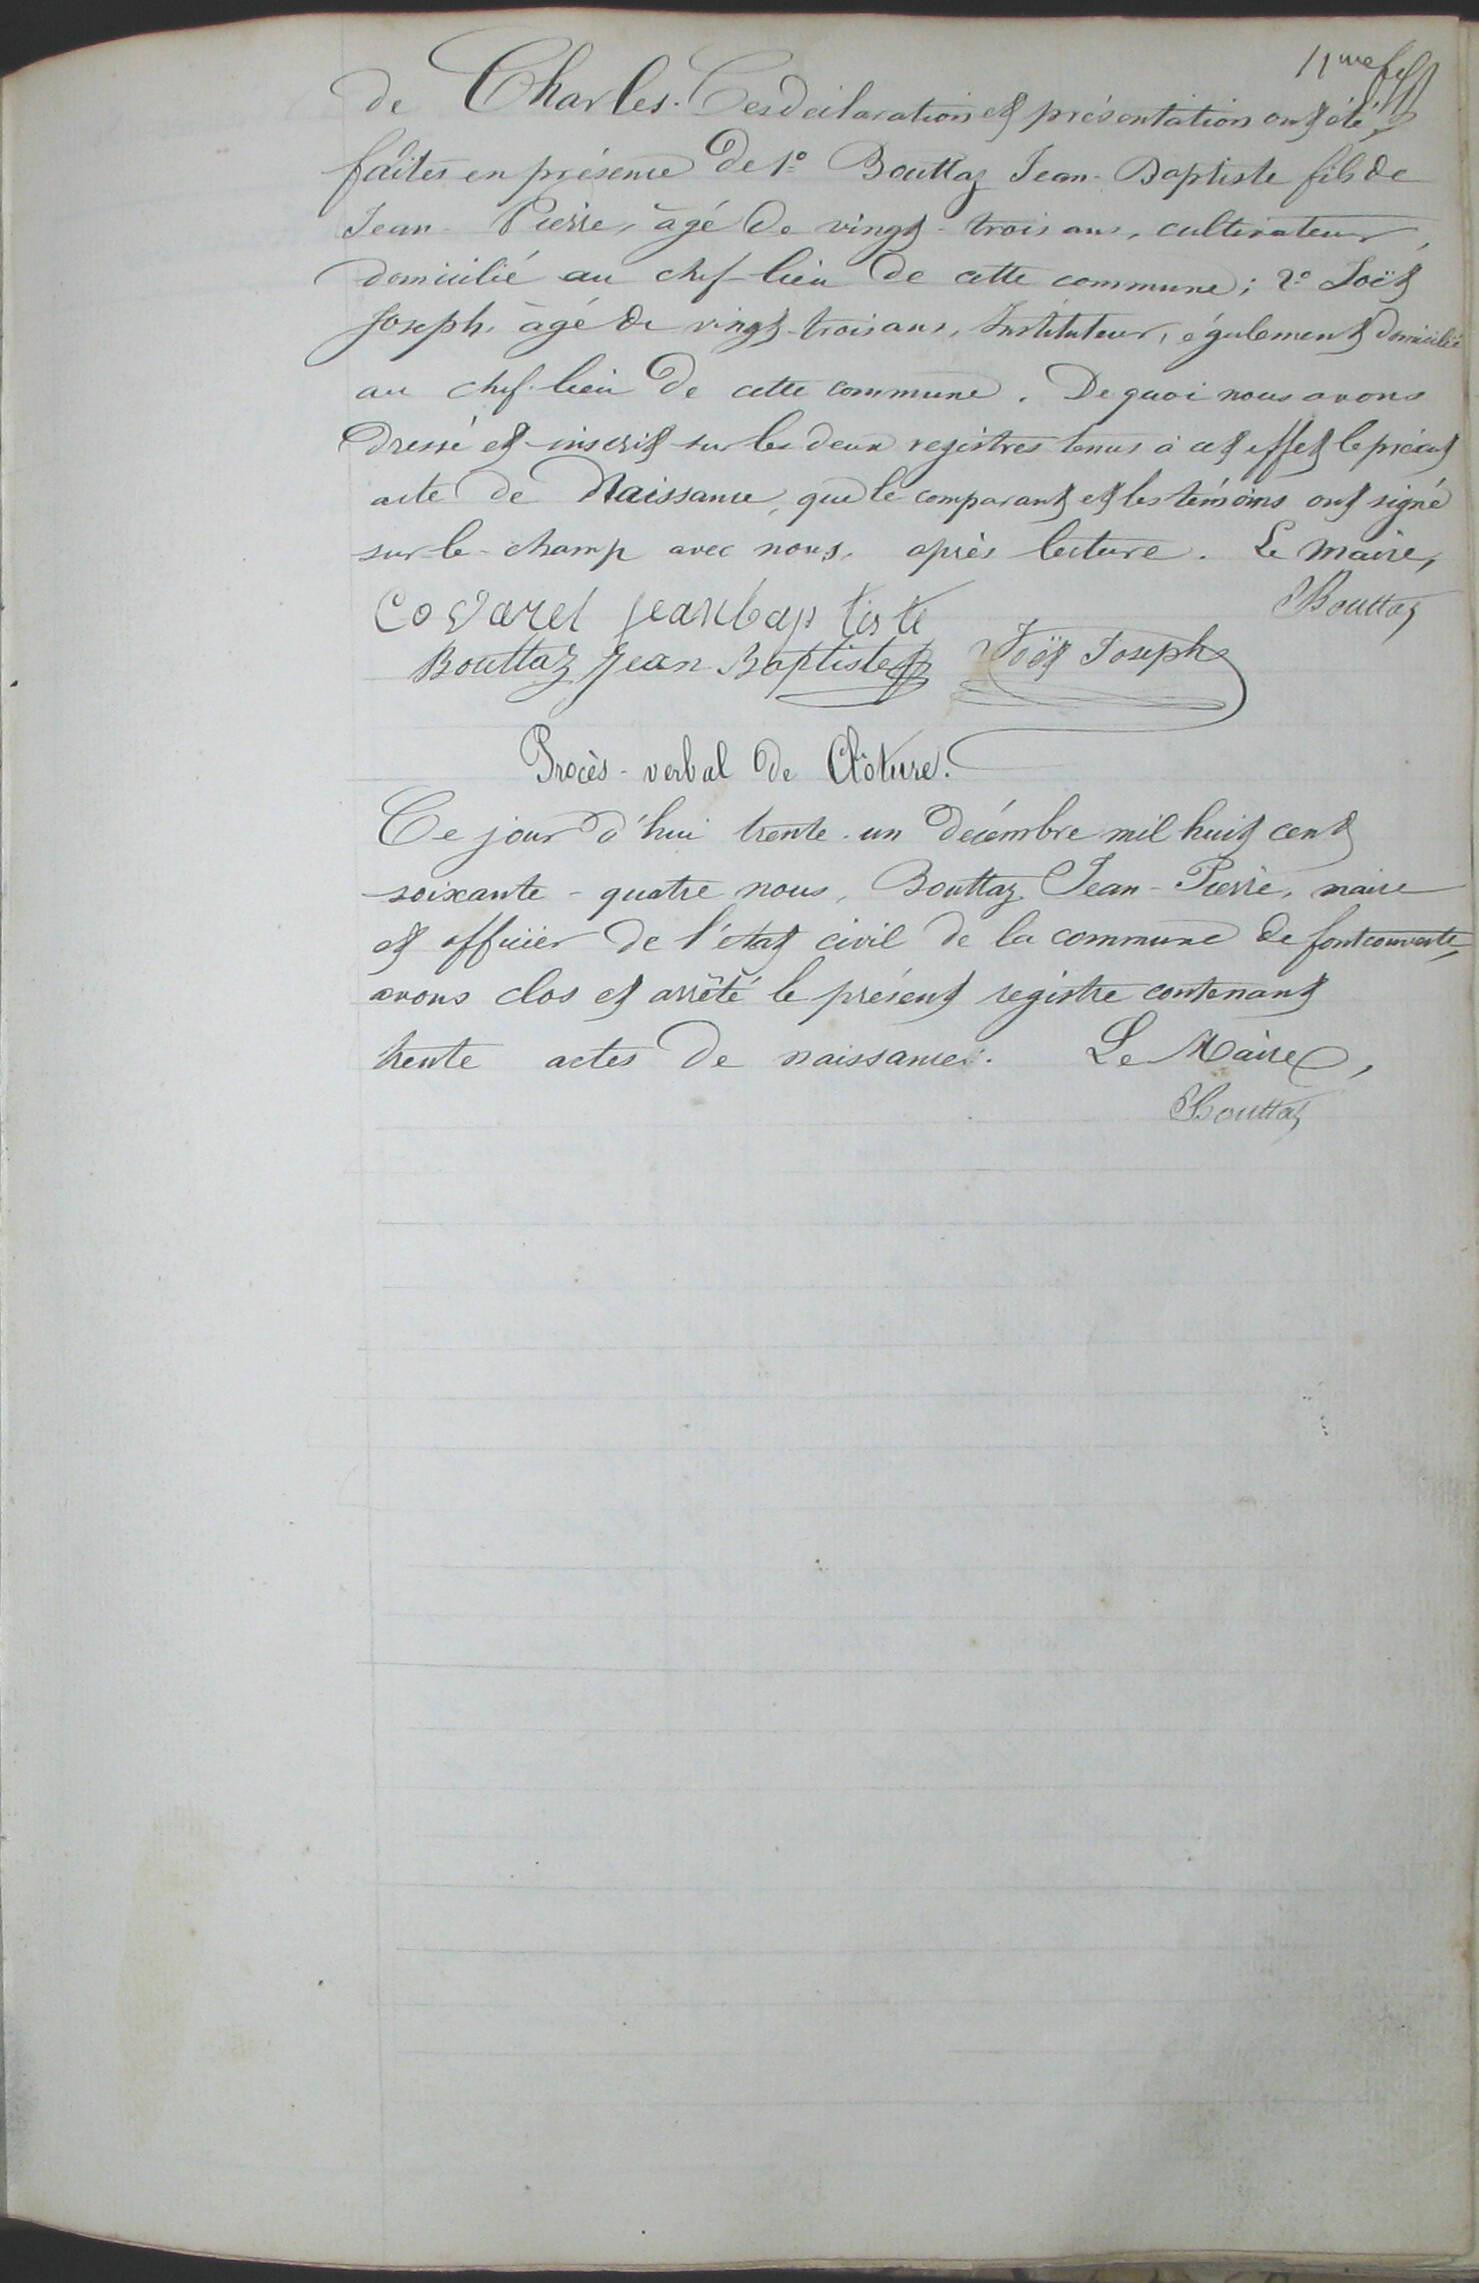 11me
de Charles. Ces déclaration et présentation ont été
faites en présence de 1º Bouttaz Jean-Baptiste fils de
Jean-Pierre, âgé de vingt-trois ans, cultivateur,
domicilié au chef-lieu de cette commune; 2º Joët
Joseph, âgé de vingt-trois ans, Instituteur, également domicilié
au chef-lieu de cette commune. De quoi nous avons
dressé et inscrit sur les deux registres tenus à cet effet le présent
acte de Naissance, que le comparant et les témoins ont signé
sur-le-champ avec nous, après lecture. Le Maire,
Bouttaz
Covarel jeanbaptiste
Bouttaz Jean Baptiste Joët Joseph
Procès-verbal de Clôture.
Ce jour d'hui trente-un décembre mil huit cent
soixante-quatre nous, Bouttaz Jean-Pierre, maire
et officier de l'état civil de la commune de fontcouverte,
avons clos et arrêté le présent registre contenant
trente actes de naissance. Le Maire,
Bouttaz